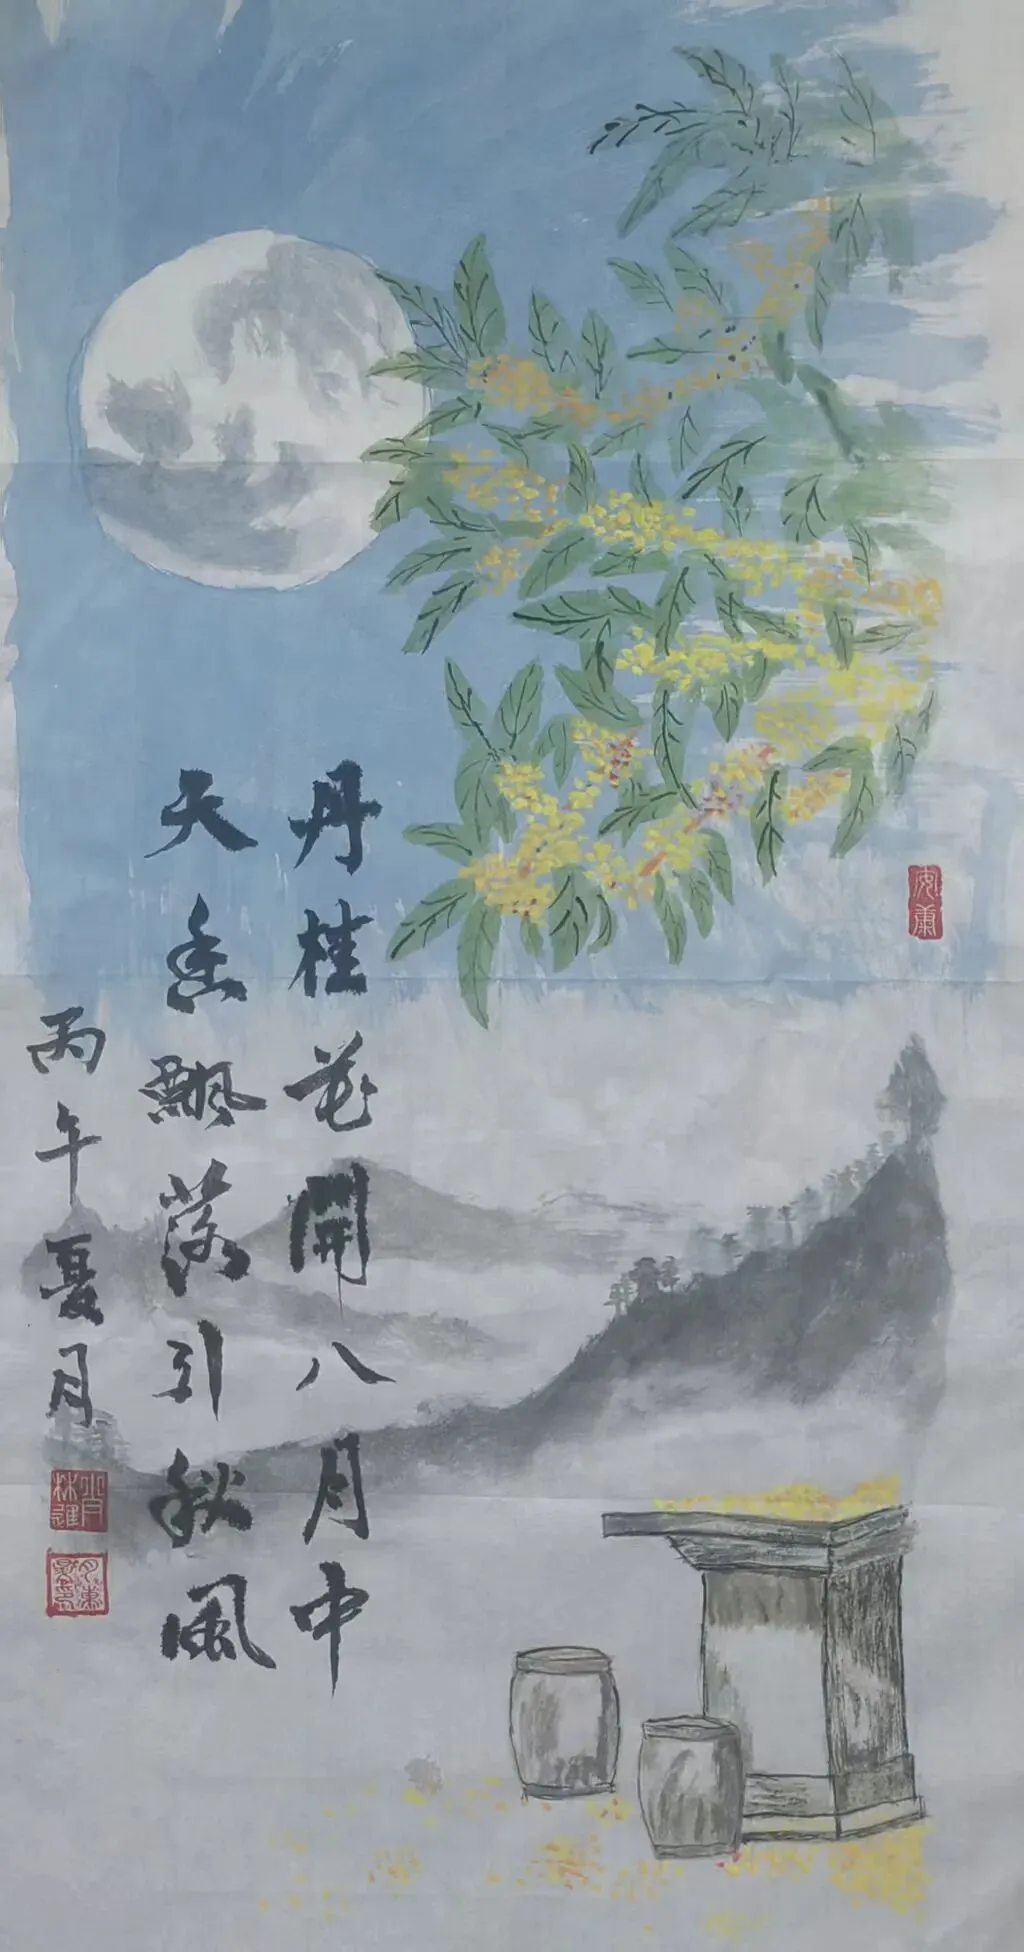 丹桂花開八月中
天香飄落引秋風
丙午夏月